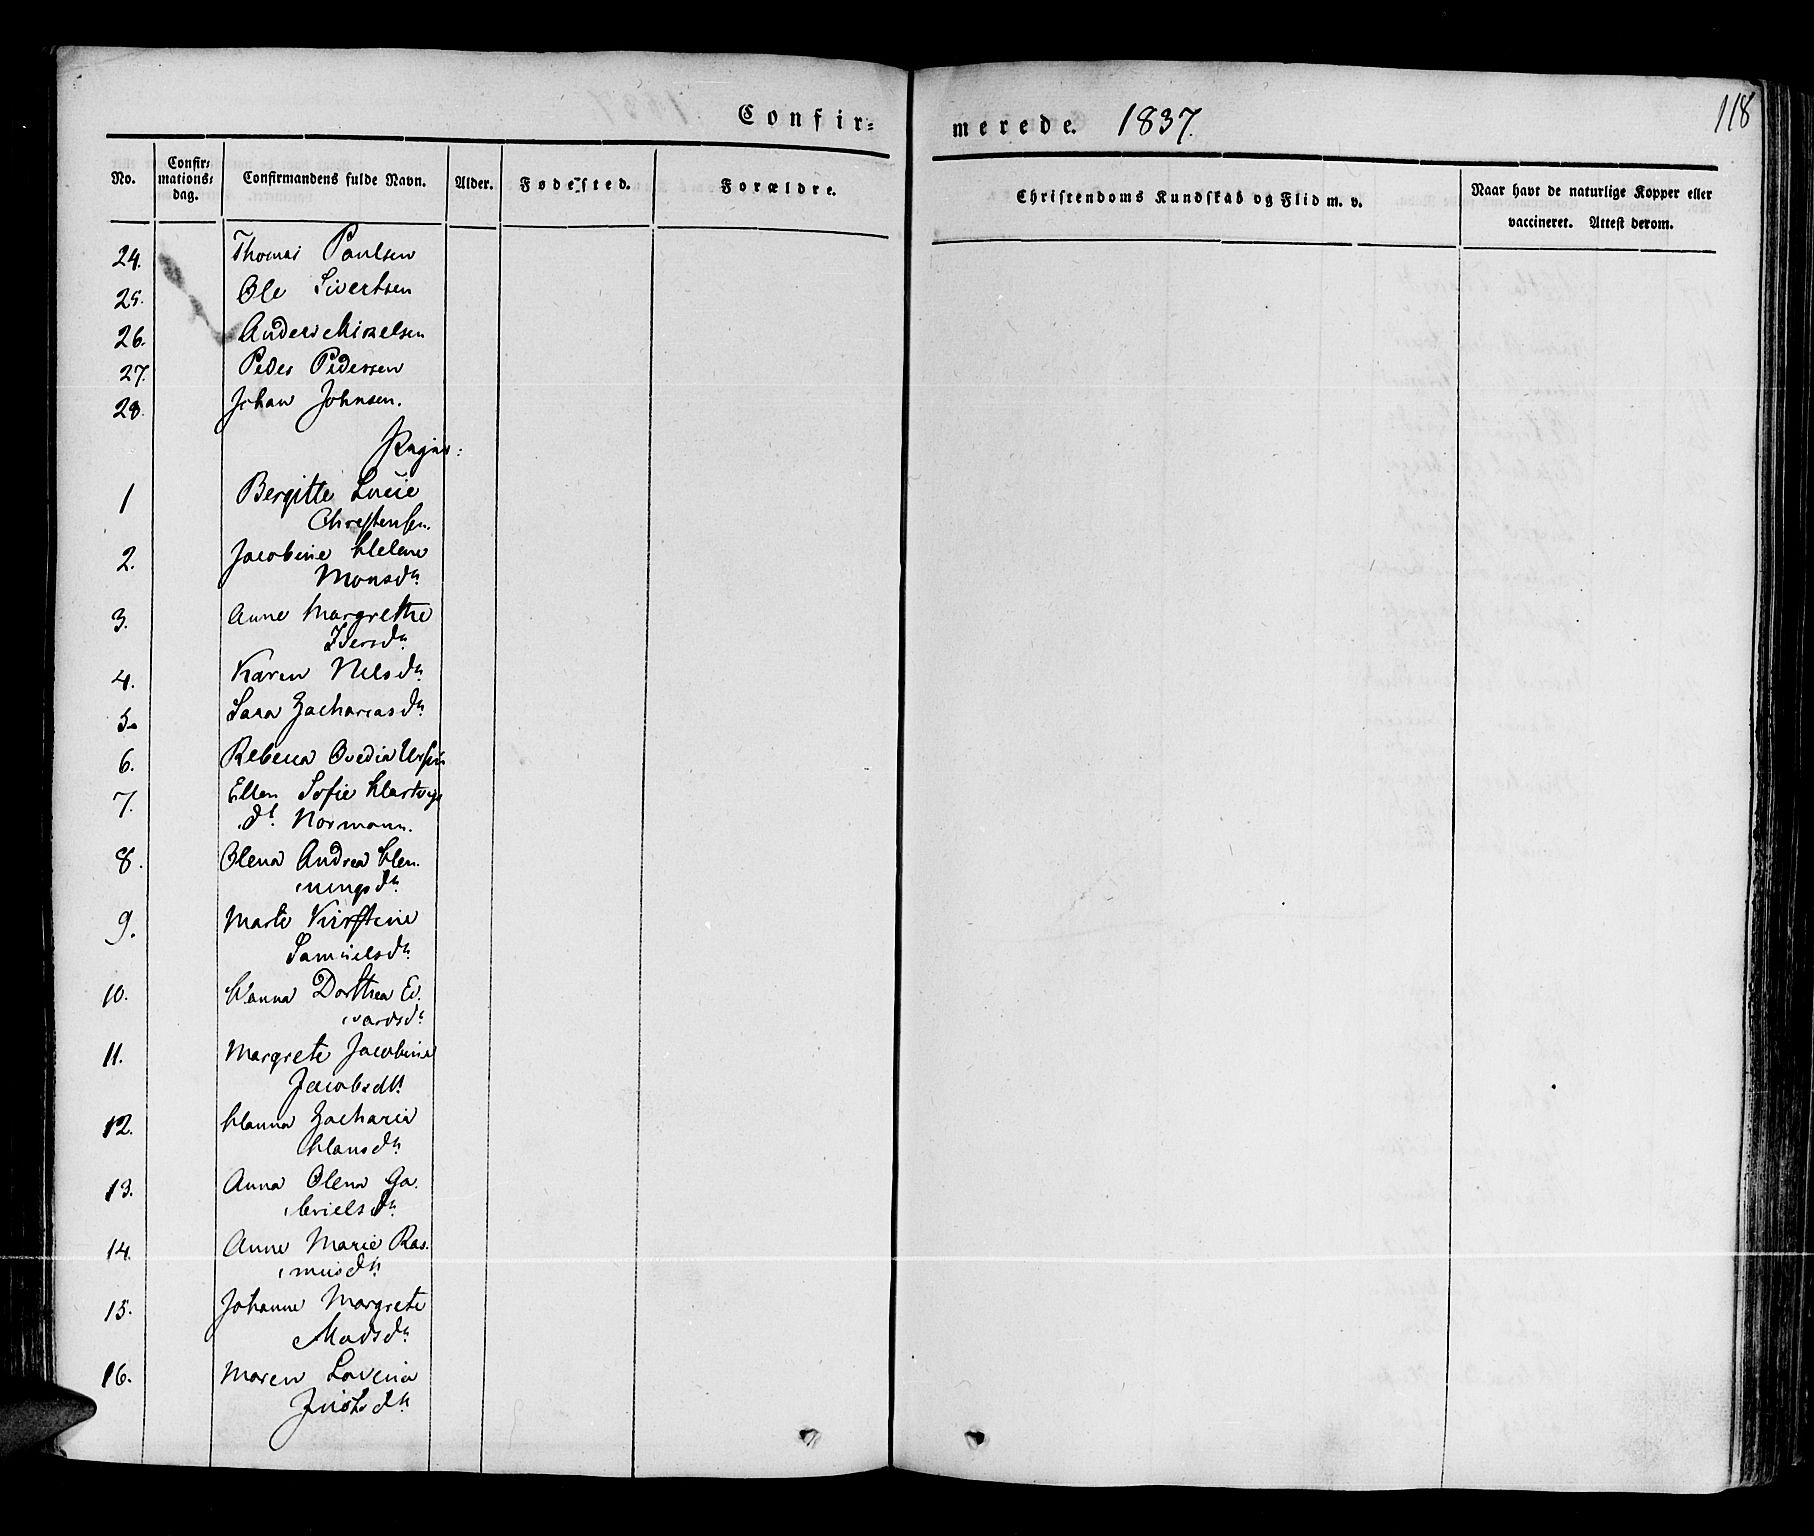 Confir=
merede. 1837.
118
No.
Confir=
mations=
dag.
Confirmandens fulde Navn.
Alder.
Fødested.
Forældre.
Christendoms Kundskab og Flid m. v.
Naar havt de naturlige Kopper eller
vaccineret. Attest derom.
24. Thomas Paulsen
25. Ole Sivertsen
26. Anders Mikkelsen
27. Peder Pedersen
28. Johan Johnsen.
Piger:
1 Bergitte Lucie
Christensen.
2. Jacobine Helene
Monsdtr
3. Anne Margrethe
Iversdtr
4. Karen Nelsdtr
5. Sara Zachariasdtr
6. Rebecca Ovedia Ursin
7. Ellen Sofie Hartvigs
dt. Normann.
8. Olena Andrea Hen.
ningsdtr
9. Marte Kirstine
Samuelsdtr
10. Hanna Dorthea Ed.
vardsdtr
11. Margrete Jacobine
Jacobsdtr
12. Hanna Zacharia
Hansdtr
13. Anna Olena Ga.
brielsdtr
14. Anne Marie Ras.
musdtr
15. Johanne Margrete
Madsdtr
16. Maren Lovena
Justsdtr